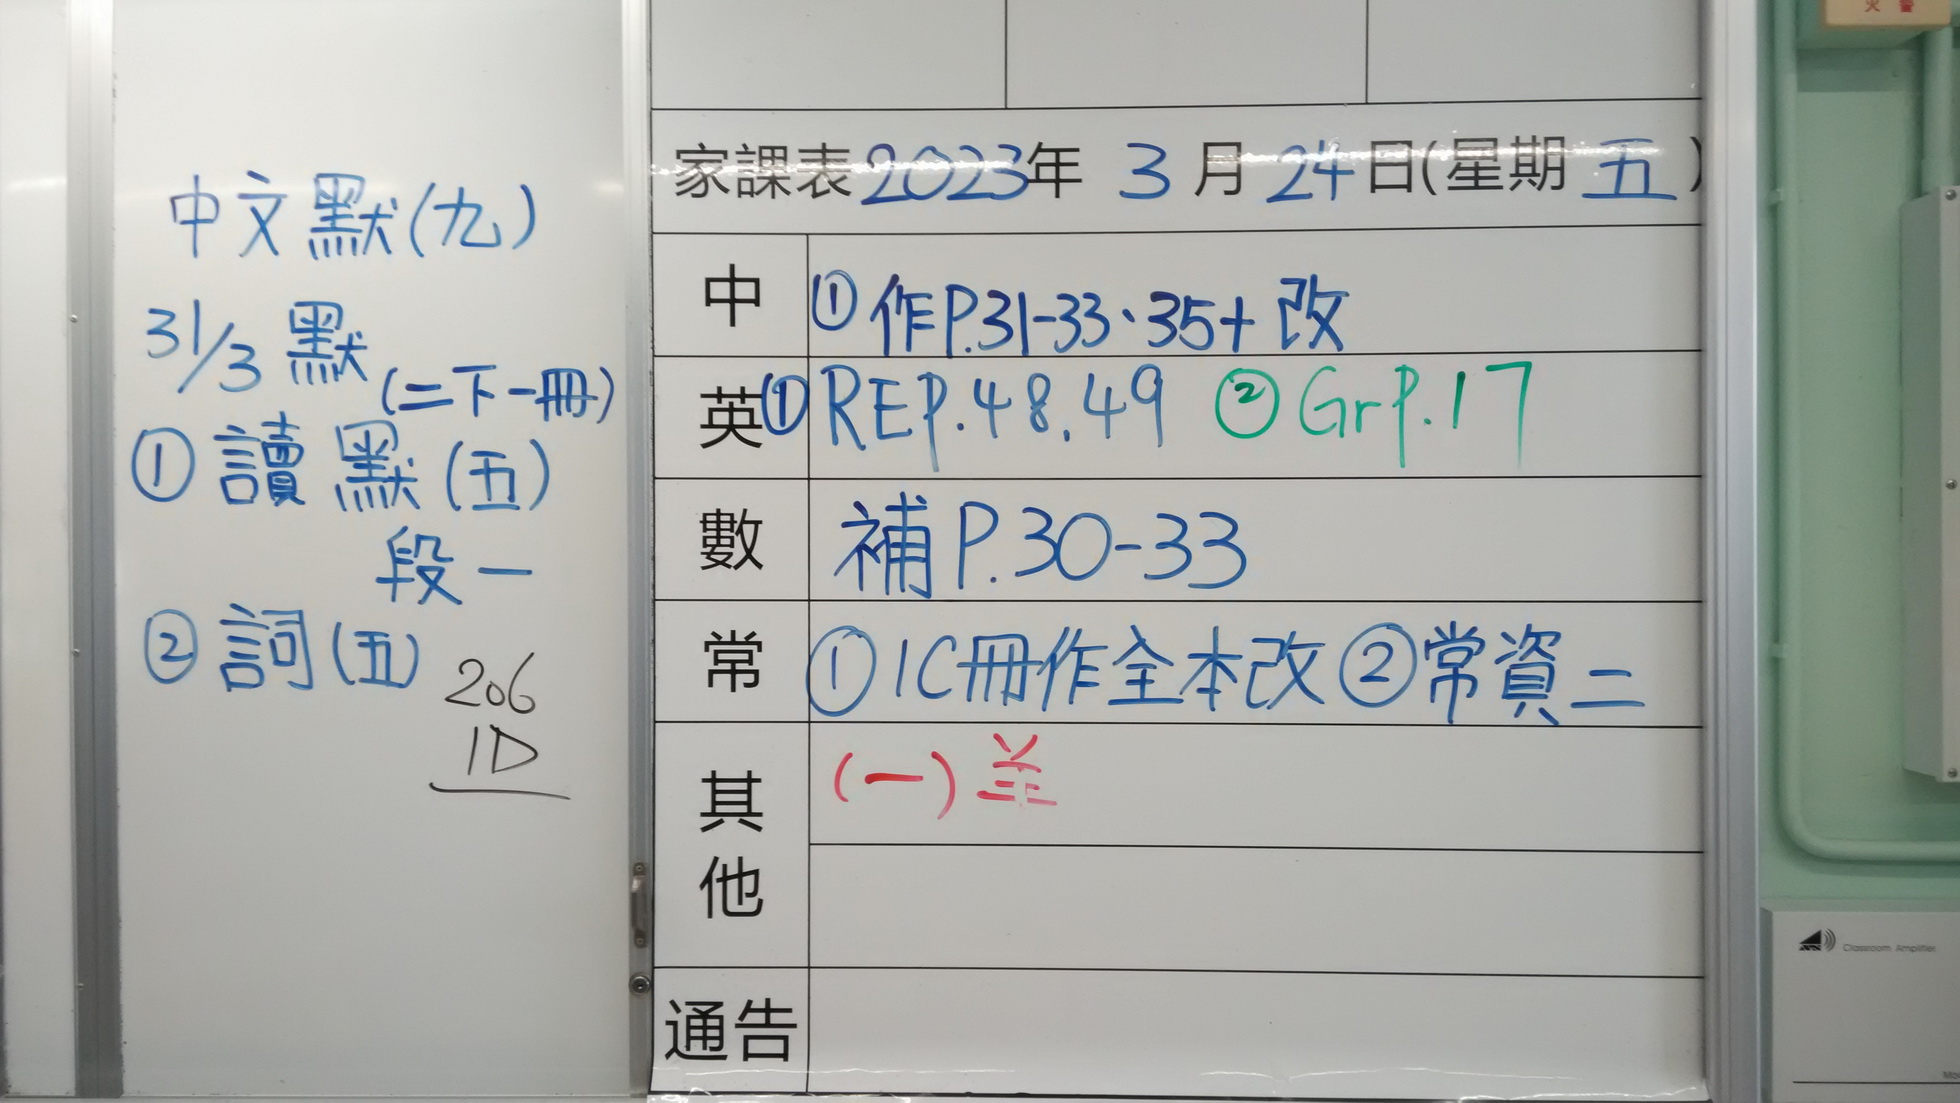 中文默(九)
31/3 默
(二下一冊)
① 讀默(五)
段一
② 詞(五)
206
1D
家課表2023年 3月24日(星期五)
中 ①作P.31-33、35+改
英 ①REP.48,49 ②GrP.17
數 補P.30-33
常 ①1C冊作全本改②常資二
其他 (一)
通告
火警
Classroom Amplifier